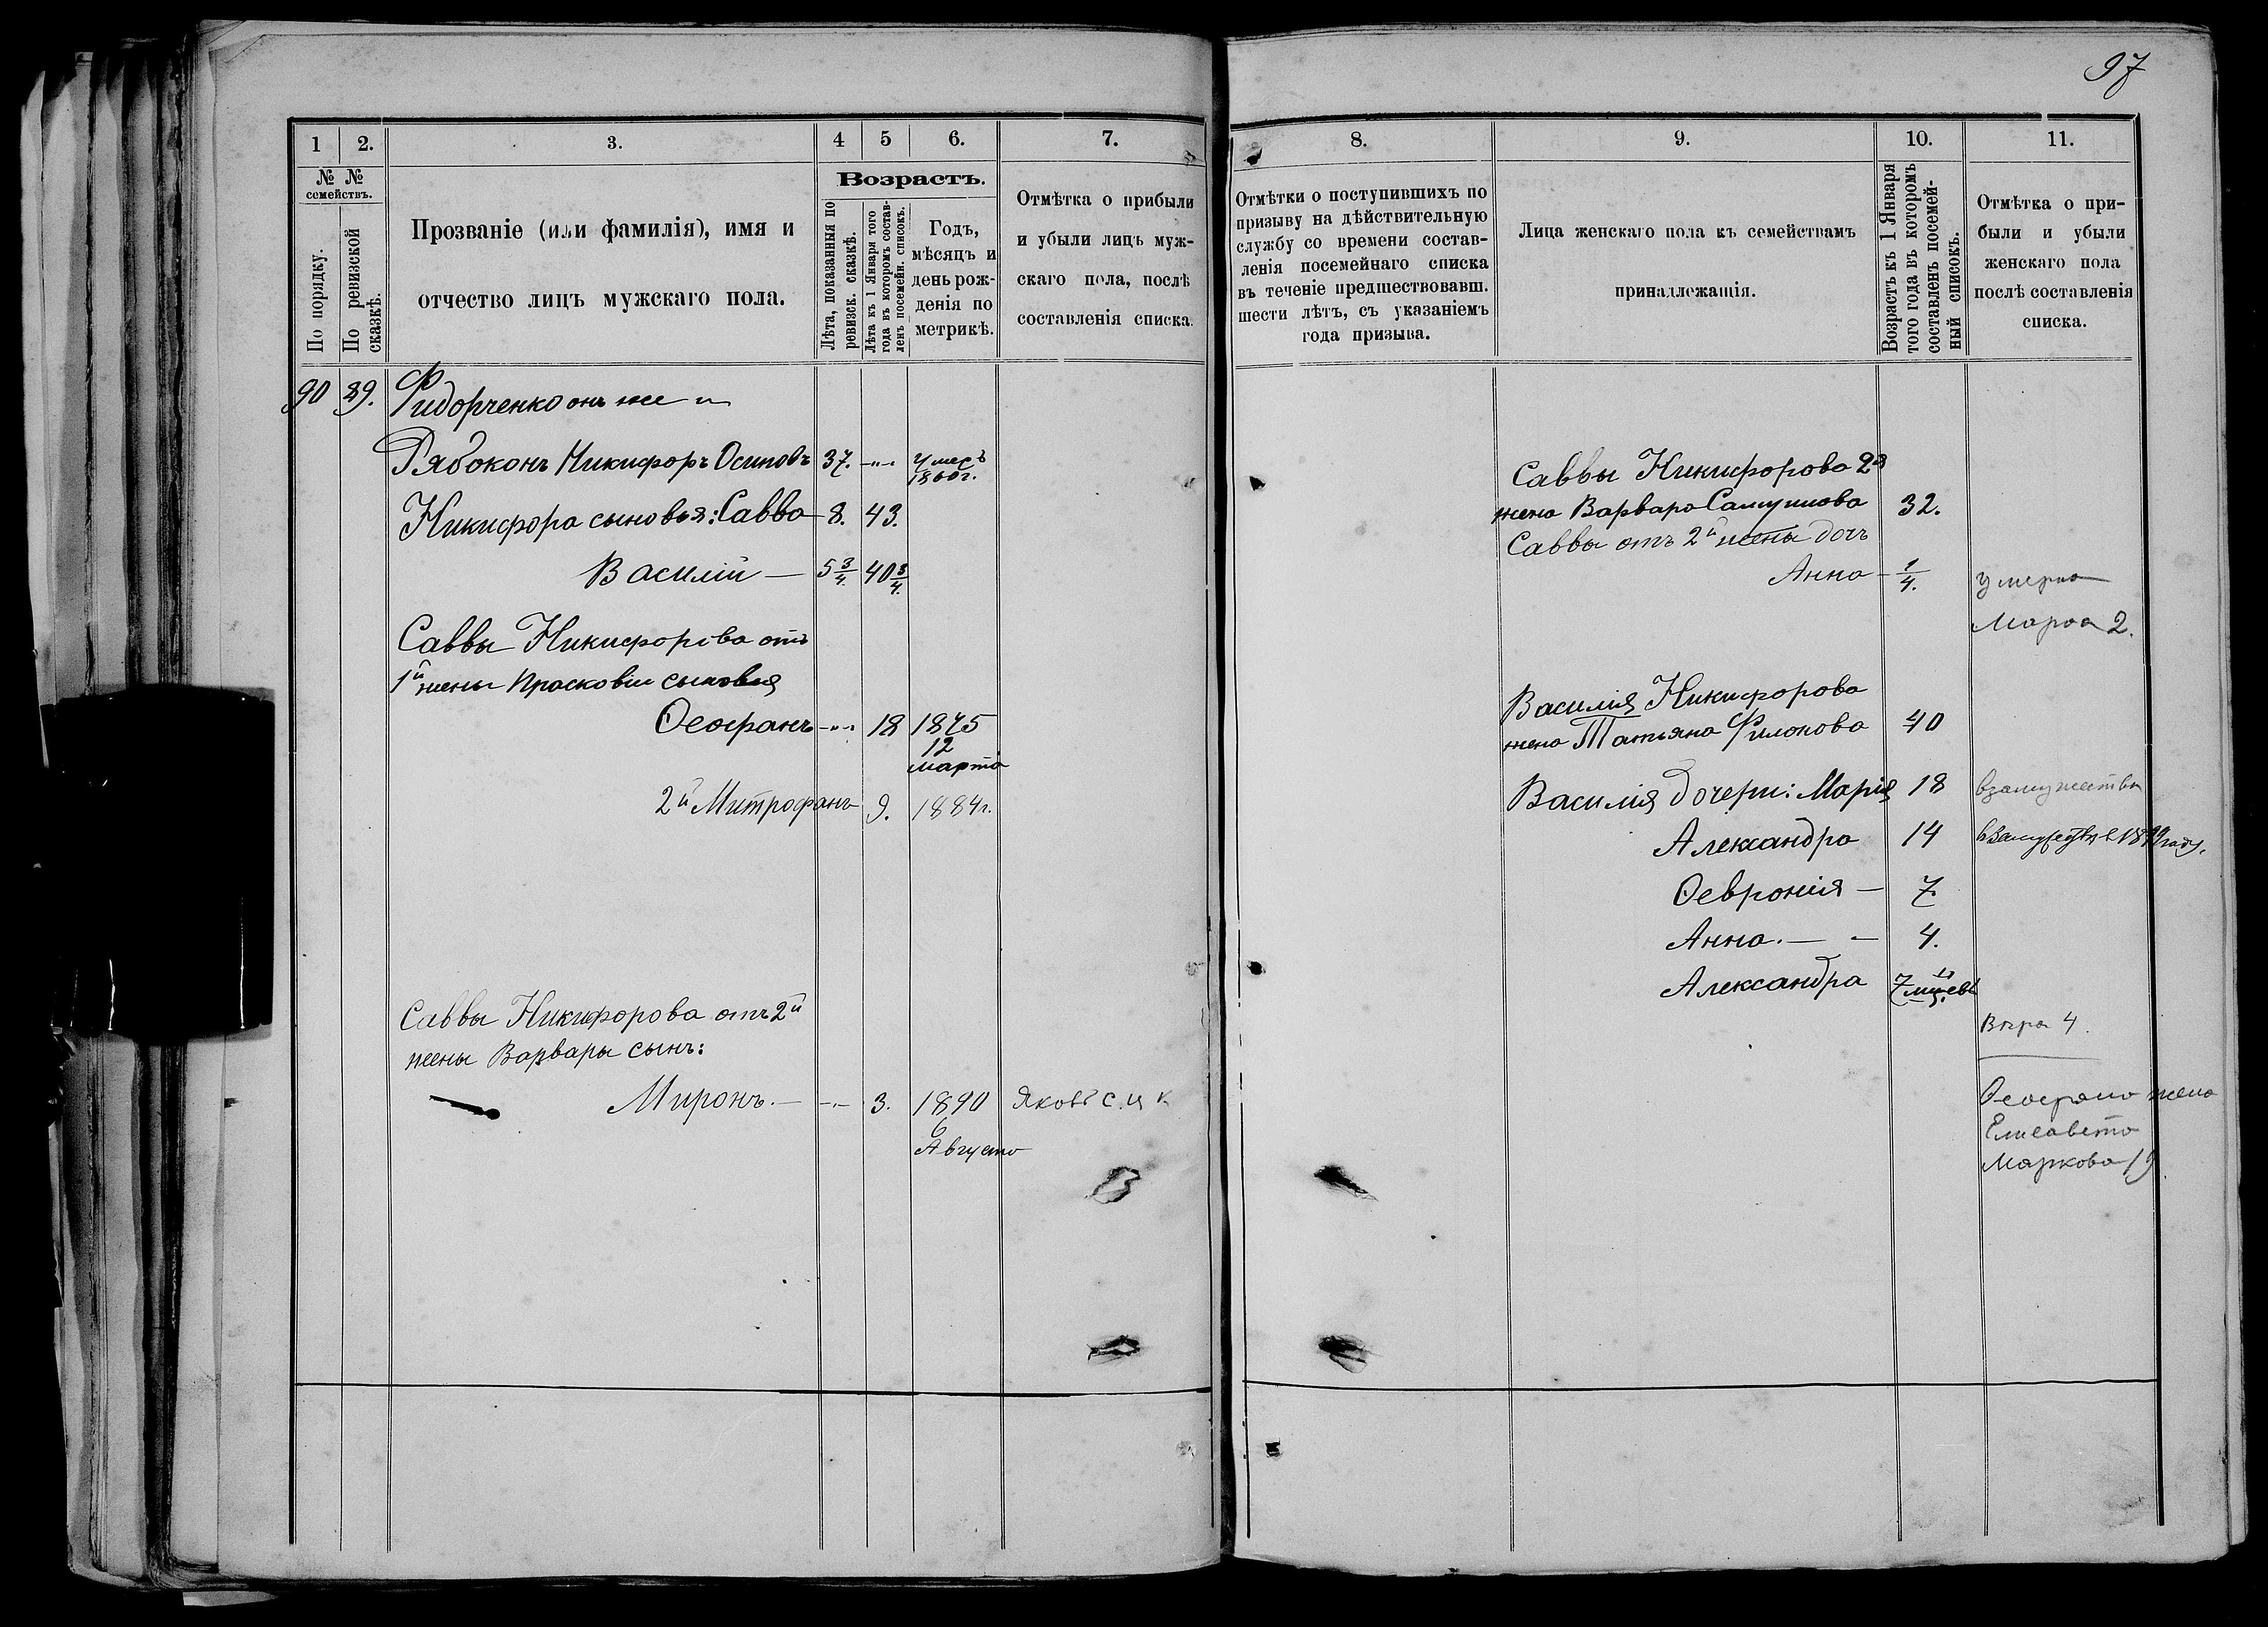 97
1 2. 3. 4 5 6. 7.
№ № семействъ.
По порядку.
По ревизской сказкѣ.
Прозваніе (или фамилія), имя и
отчество лицъ мужскаго пола.
Возрастъ.
Лѣта, показанныя по ревизск. сказкѣ.
Лѣта къ 1 Января того года въ которомъ составленъ посемейн. списокъ.
Годъ,
мѣсяцъ и
день рож-
денія по
метрикѣ.
Отмѣтка о прибыли
и убыли лицъ муж-
скаго пола, послѣ
составленія списка.
90 89. Фидорченко онъ же и
Рябоконь Никифоръ Осиповъ 37. -"- умеръ
1860 г.
Никифора сыновья: Савва 8. 43.
Василій — 5 3/4. 40 3/4.
Саввы Никифорова отъ
1й жены Прасковіи сыновья
Ѳеофанъ -"- 18 1875
12
марта
2й Митрофанъ 9. 1884 г.
Саввы Никифорова отъ 2й
жены Варвары сынъ:
Миронъ. — -"- 3. 1890 Яковъ
6
Августа
8. 9. 10. 11.
Отмѣтки о поступившихъ по
призыву на дѣйствительную
службу со времени состав-
ленія посемейнаго списка
въ теченіе предшествовавш.
шести лѣтъ, съ указаніемъ
года призыва.
Лица женскаго пола къ семействамъ
принадлежащія.
Возрастъ къ 1 Января
того года въ которомъ
составленъ посемей-
ный списокъ.
Отмѣтка о при-
были и убыли
женскаго пола
послѣ составленія
списка.
Саввы Никифорова 2я
жена Варвара 32.
Саввы отъ 2й жены дочь
Анна - 1/4. умерла
Марѳа 2.
Василія Никифорова
жена Татьяна Филонова 40
Василія дочери: Марія 18 взамужествѣ
Александра 14
Ѳевронія — 7.
Анна. — - 4.
Александра 7 мѣсяцевъ
Вѣра 4.
Ѳеофана жена
Елисавета
Маркова 19